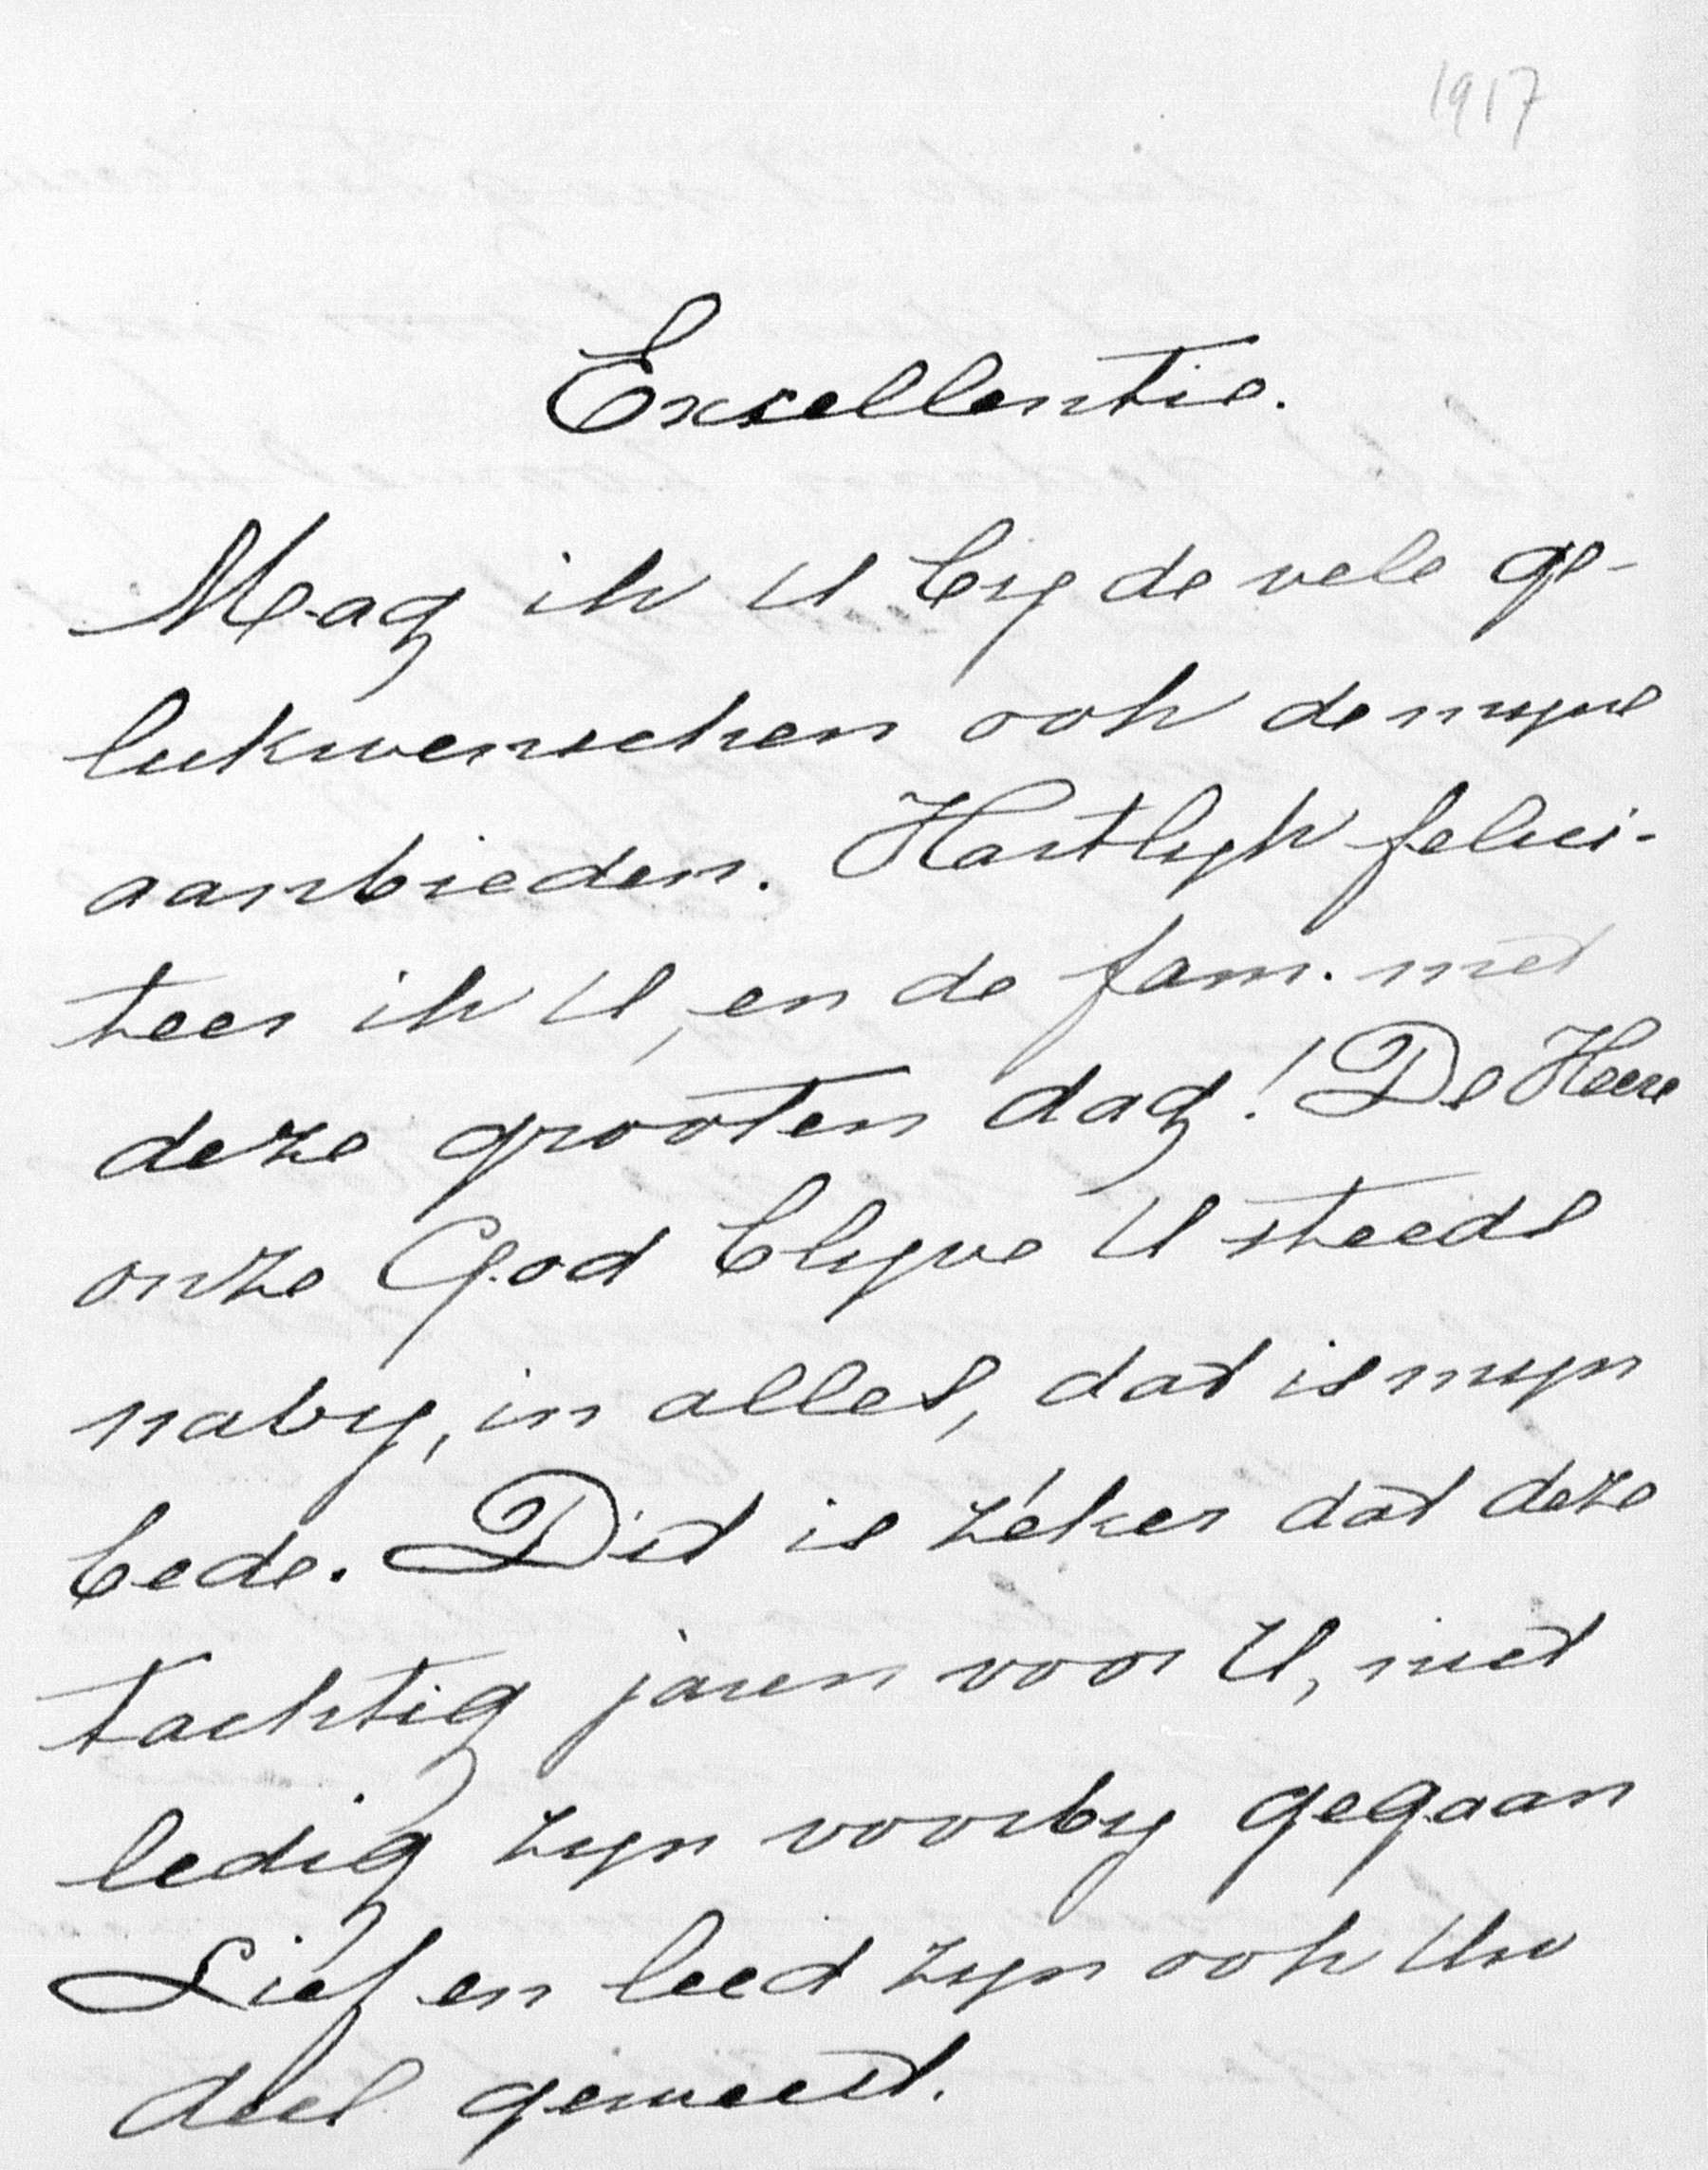 1917
Excellentie.
Mag ik U by de vele ge-
lukwenschen ook de myne
aanbieden. Hartlyk felici-
teer ik U, en de fam. met
deze grooten dag! De Heere
onze God blyve U steeds
naby, in alles, dat is myn
bede. Dit is zéker dat deze
tachtig jaren voor U, niet
ledig zyn voorby gegaan
Lief en leed zyn ook Uw
deel geweest.